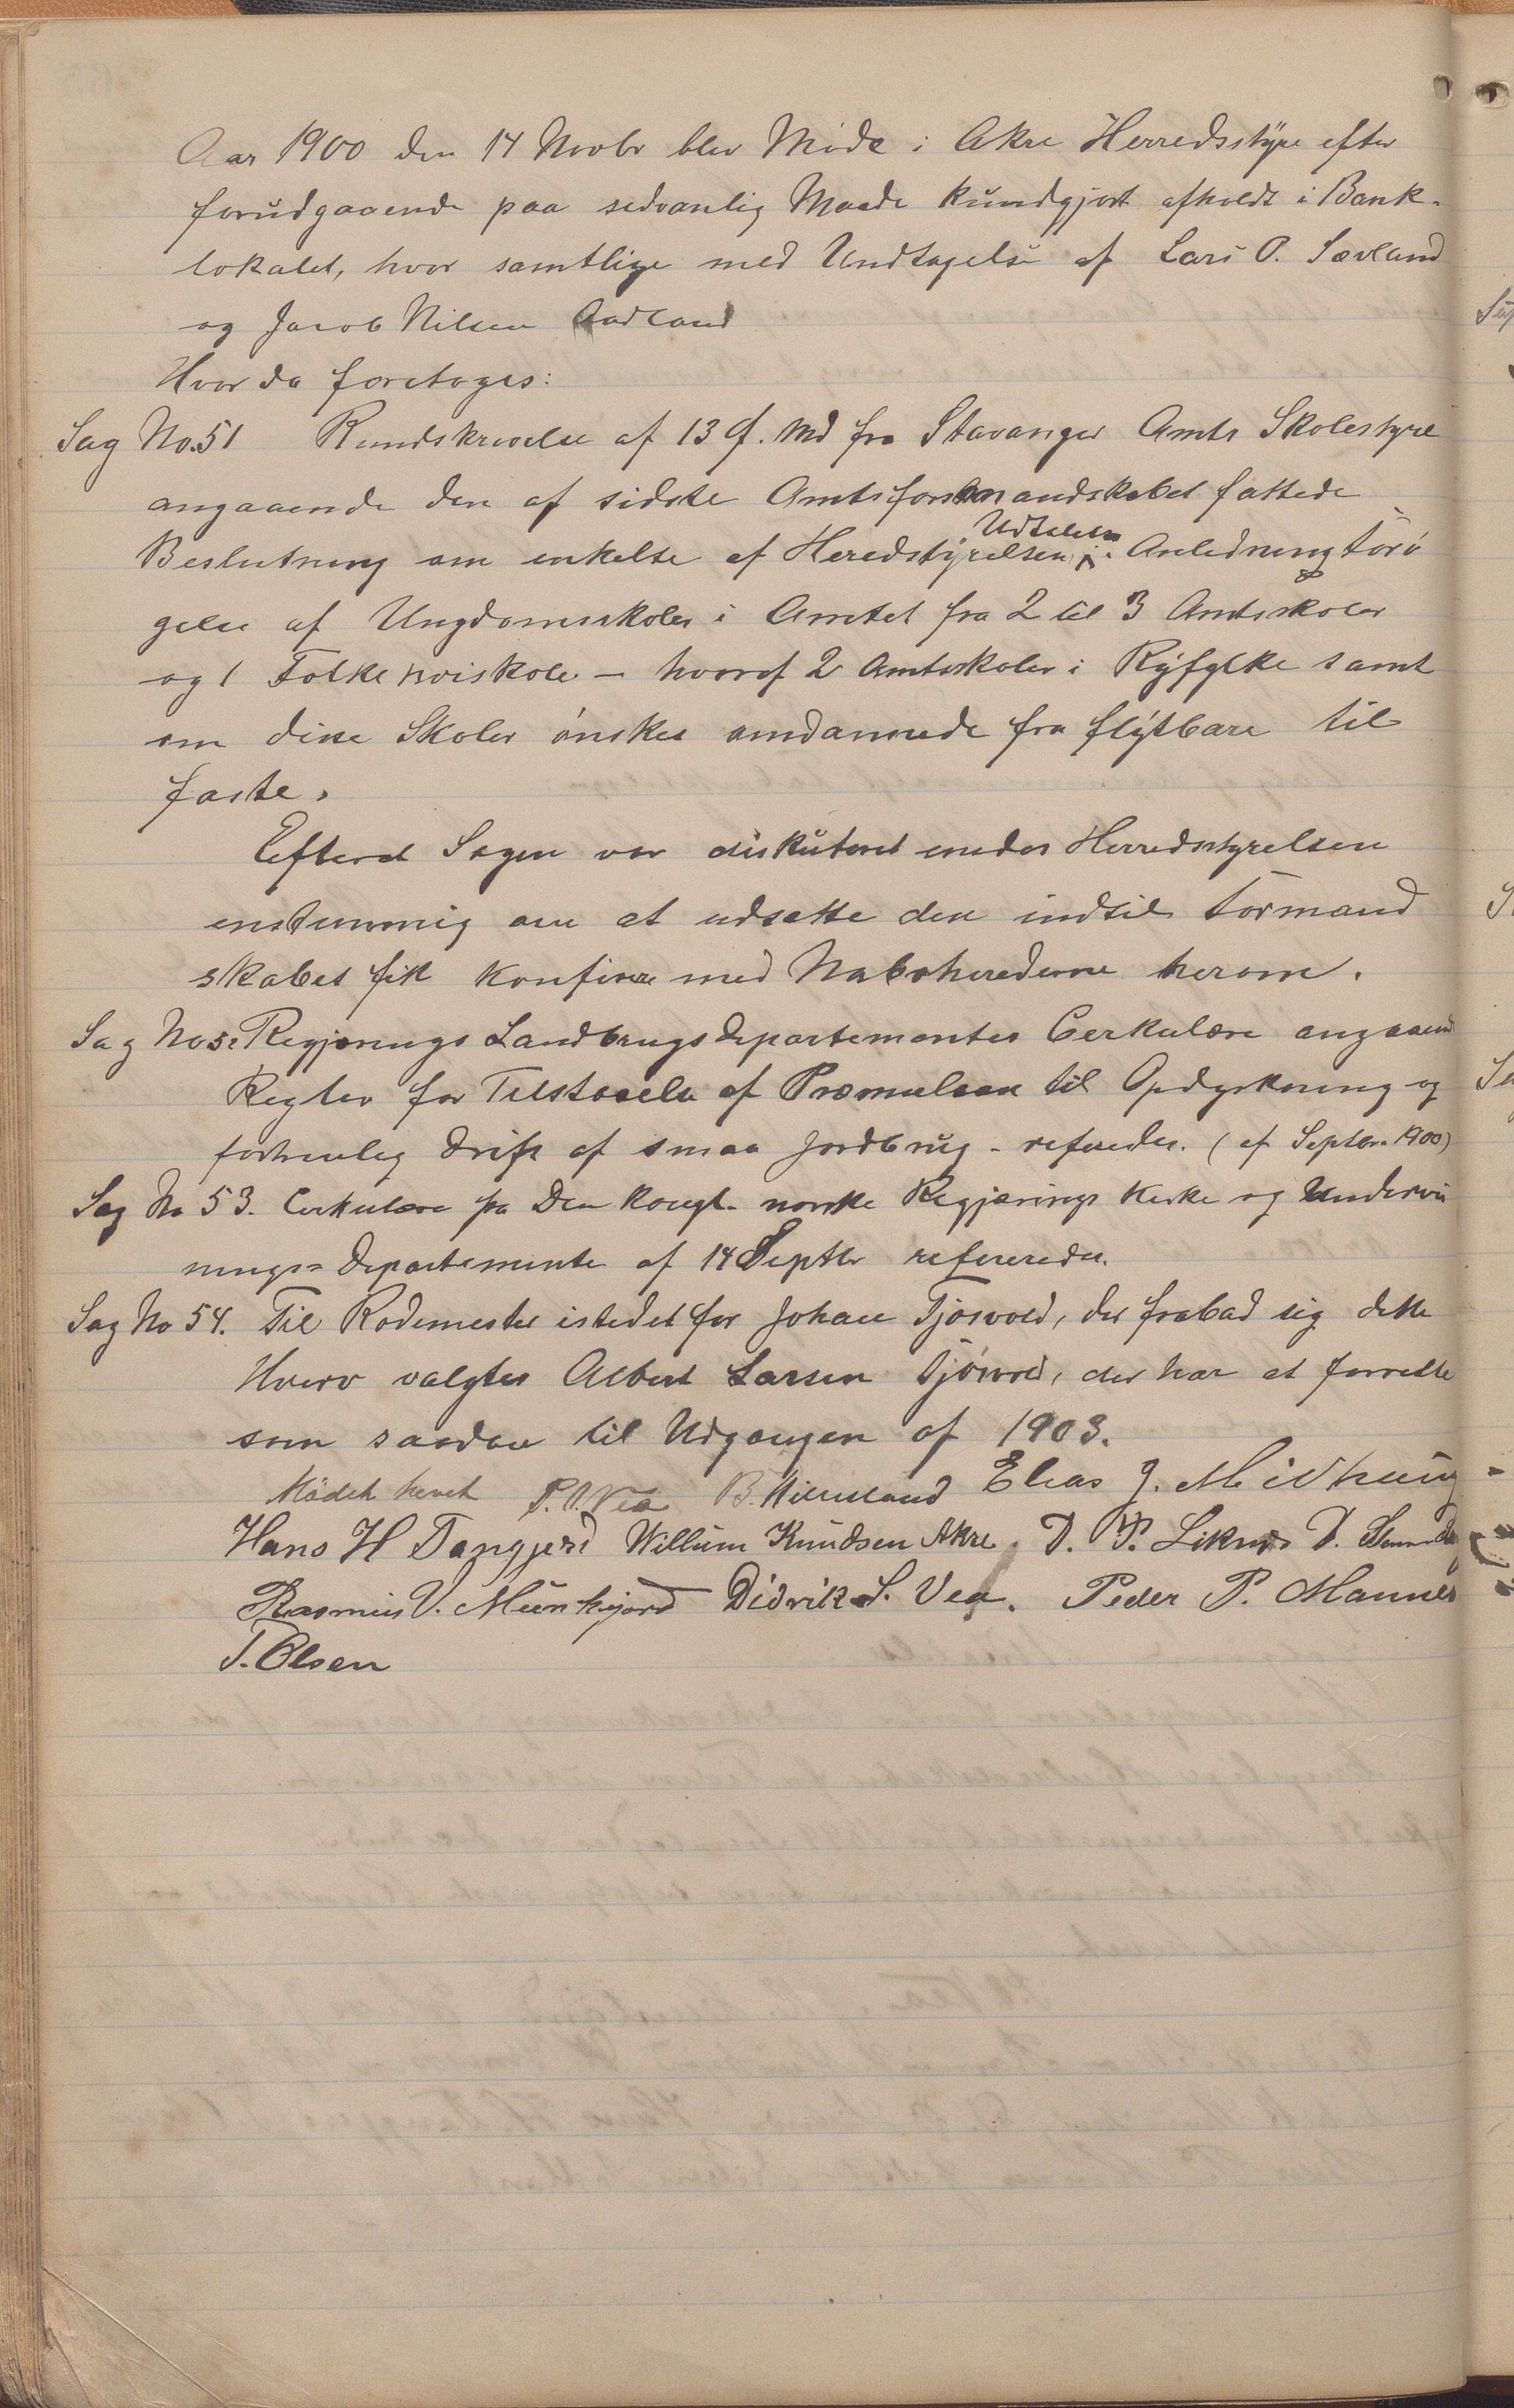 Aar 1900 den 14 Novbr blev Møde i Akre Herredsstyre efter
forudgaaende paa sedvanlig Maade kundgjort afholdt i Bank-
lokalet, hvor samtlige med Undtagelse af Lars O. Sævland
og Jacob Nilsen Aadland
Hvor da foretoges:
Sag No. 51 Rundskrivelse af 13 f. Md fra Stavanger Amts Skolestyre
angaaende den af sidste Amtsformandskabet fattede
Beslutning om enkelte af Heredstyrelsen Udtalelse i Anledning Forø
gelse af Ungdomsskoler i Amtet fra 2 til 3 Amtsskoler
og 1 Folkehøiskole - hvoraf 2 Amtsskoler i Ryfylke samt
om disse Skoler ønskes omdannede fra flytbare til
faste.
Efterat Sagen var diskuteret enedes Herredsstyrelsen
enstemmig om at udsætte den indtil Formand
skabet fik konferere med Naboherederne herom.
Sag No 52 Regjerings Landbrugsdepartementes Cerkulære angaaend
Regler for Tilstaaelse af Præmielaan til Opdyrkning og
forhenlig Drift af smaa Jordbrug - referedes. (af Septbr. 1900)
Sag No 53. Cerkulære fra Den kongl. norske Regjerings Kirke og Undervis
nings= Departemente af 14 Septbr refereredes.
Sag No 54. Til Rodemester istedet for Johan Tjøsvold, der frabad sig dette
Hverv valgtes Albert Larsen Tjøsvold, der har at forrette
som saadan til Udgangen af 1903.
Mødet hevet P. O. Vea B. Hillesland Elias J. Midhaug
Hans H Dangjerd Willum Knudsen Akre. D. P. Liknes D.
Rasmus V. Munkejord Didrik S. Vea. Peder P. Mannes
T. Olsen